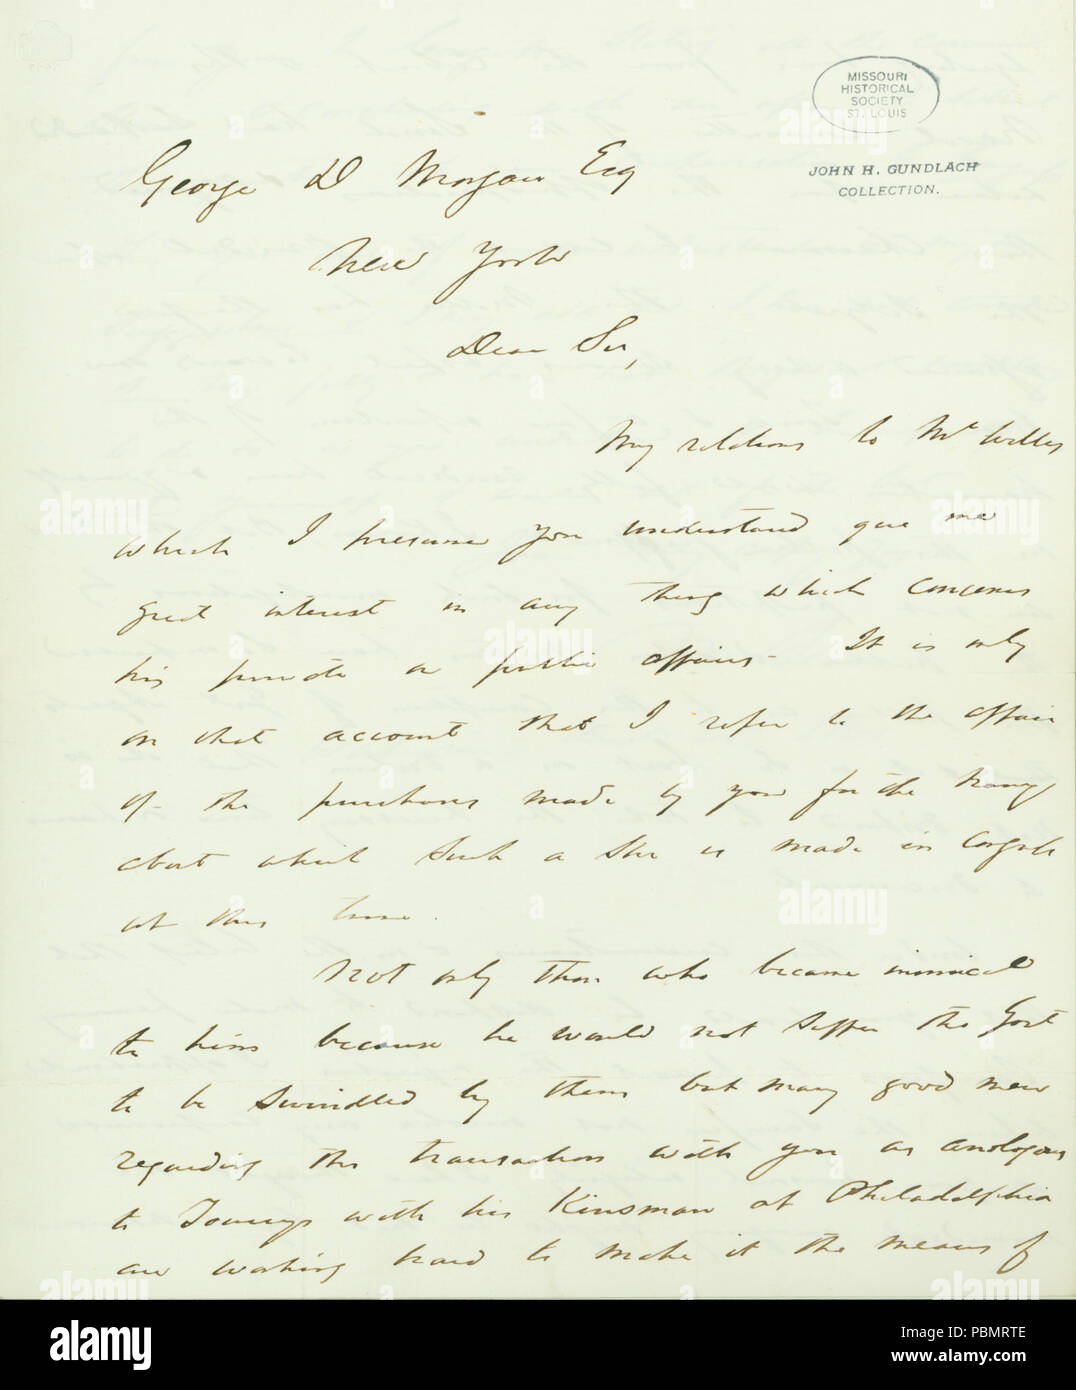 MISSOURI
HISTORICAL
SOCIETY
ST. LOUIS
JOHN H. GUNDLACH
COLLECTION.
George D Morgan Esq
New York
Dear Sir,
My relations to Mr Welles
which I presume you understand give me
great interest in any thing which concerns
his private or public affairs - It is only
on that account that I refer to the affair
of the purchases made by you for the Navy
about which such a stir is made in Congress
at this time.
Not only those who became inimical
to him because he would not suffer the Govt
to be swindled by them but many good men
regarding the transaction with you as analogous
to Toucey's with his Kinsman at Philadelphia
are working hard to make it the means of
alamy
alamy
alamy
alamy
alamy
alamy
alamy
alamy
alamy
alamy
alamy
alamy
Image ID: PBMRTE
www.alamy.com